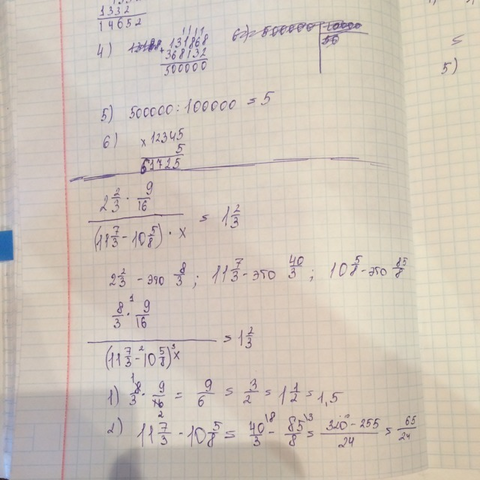 1332
14652
4) 131868
368132
500000
5) 500000 : 100000 = 5
6) × 12345
5
61725
2 2/3 · 9/16
(11 7/3 - 10 5/8) · x = 1 2/3
2 2/3 - это 8/3 ; 11 7/3 - это 40/3 ; 10 5/8 - это 85/8
8/3 ·¹ 9/16
(11 7/3 -² 10 5/8)³ x = 1 2/3
1) 8/3 · 9/16 = 9/6 = 3/2 = 1 1/2 = 1,5
2) 11 7/3 - 10 5/8 = 40/3 - 85/8 = 320 - 255/24 = 65/24
5)